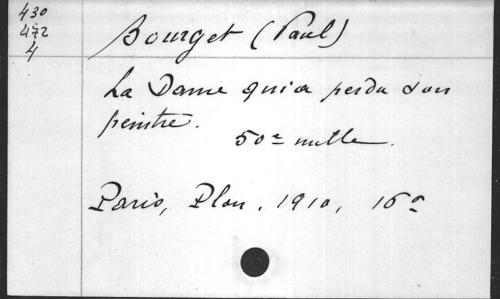 430
472
4
Bourget (Paul)
La Dame qui a perdu son
peintre.
50e mille.
Paris, Plon. 1910, 16o